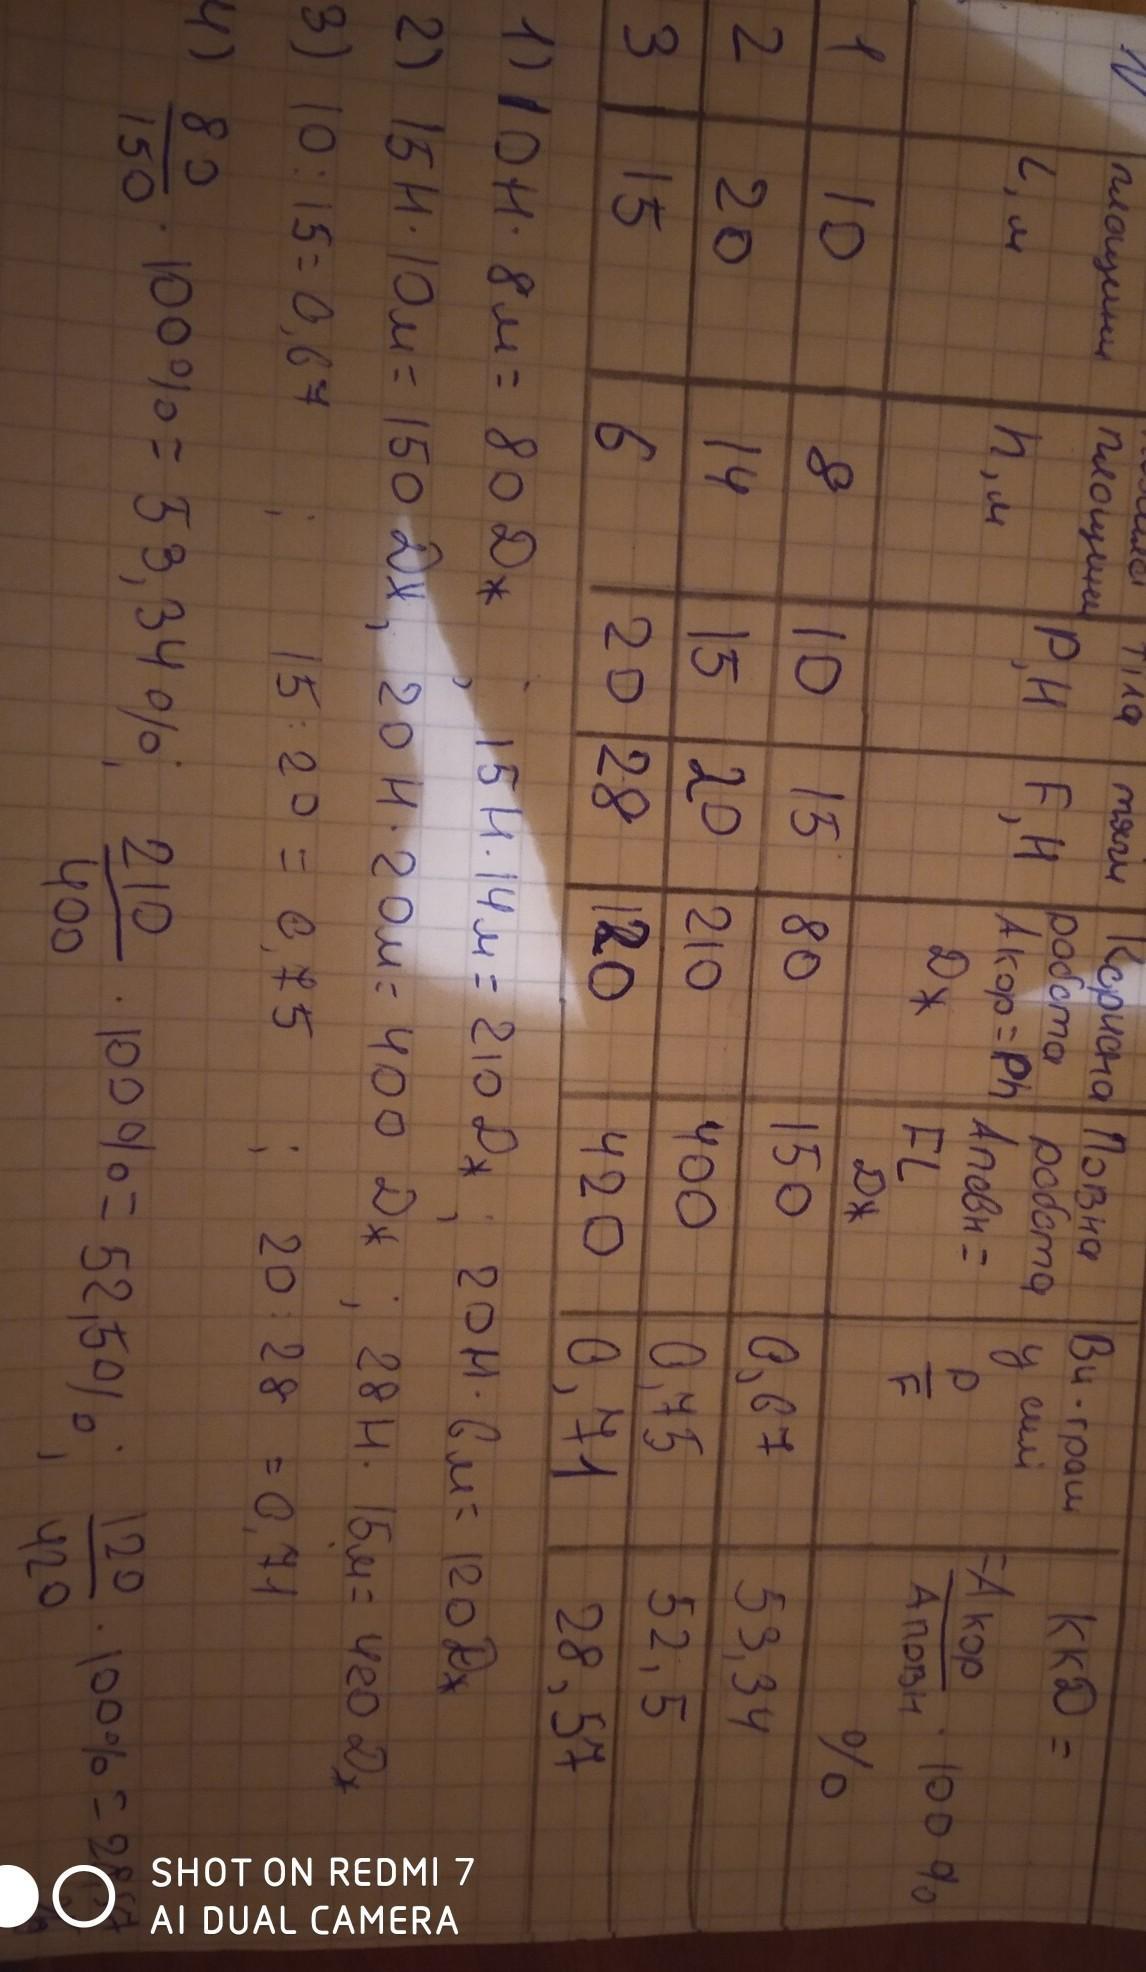 N площини площини тіла тяги Корисна Повна Ви-граш ККД =
L, м h, м P, Н F, Н робота Aкор=Ph Дж робота Aповн= FL Дж у силі P/F =Aкор/Aповн · 100% %
1 10 8 10 15 80 150 0,67 53,34
2 20 14 15 20 210 400 0,75 52,5
3 15 6 20 28 120 420 0,71 28,57
1) 10Н · 8м = 80Дж ; 15Н · 14м = 210Дж ; 20Н · 6м = 120Дж
2) 15Н · 10м = 150Дж, 20Н · 20м = 400Дж ; 28Н · 15м = 420Дж
3) 10:15 = 0,67 ; 15:20 = 0,75 ; 20:28 = 0,71
4) 80/150 · 100% = 53,34%; 210/400 · 100% = 52,5%; 120/420 · 100% =
SHOT ON REDMI 7
AI DUAL CAMERA